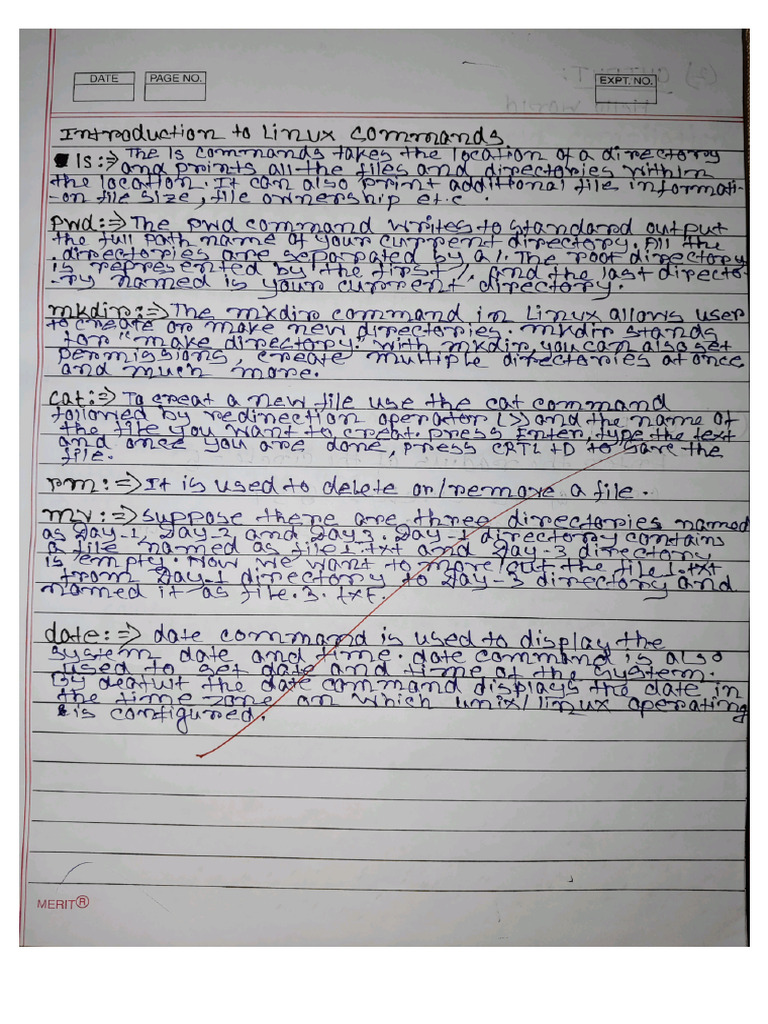 DATE
PAGE NO.
EXPT. NO.
Introduction to Linux Commands
ls:⇒ The ls commands takes the location of a directory
and prints all the files and directories within
the location. It can also print additional file informati-
-on file size, file ownership et.c
pwd:⇒ The pwd command writes to standard output
the full path name of your current directory. All the
directories are separated by a /. The root directory
is represented by the first /, and the last directo-
-ry named is your current directory.
mkdir:⇒ The mkdir command in Linux allows user
to create or make new directories. mkdir stands
for "make directory." with mkdir, you can also set
permissions, create multiple directories at once
and much more.
cat:⇒ To creat a new file use the cat command
followed by redirection operator (>) and the name of
the file you want to creat. press Enter, type the text
and once you are done, press CRTL +D to save the
file.
rm:⇒ It is used to delete or/remove a file.
mv:⇒ suppose there are three directories named
as Day-1, Day-2 and Day 3. Day-1 directory contains
a file named as file 1.txt and Day-3 directory
is empty. Now we want to move/cut the file 1.txt
from Day-1 directory to Day-3 directory and
named it as file.3.txt.
date:⇒ date command is used to display the
system date and time. date command is also
used to set date and time of the system.
By deafult the date command displays the date in
the time zone on which unix/linux operating
is configured.
MERIT®